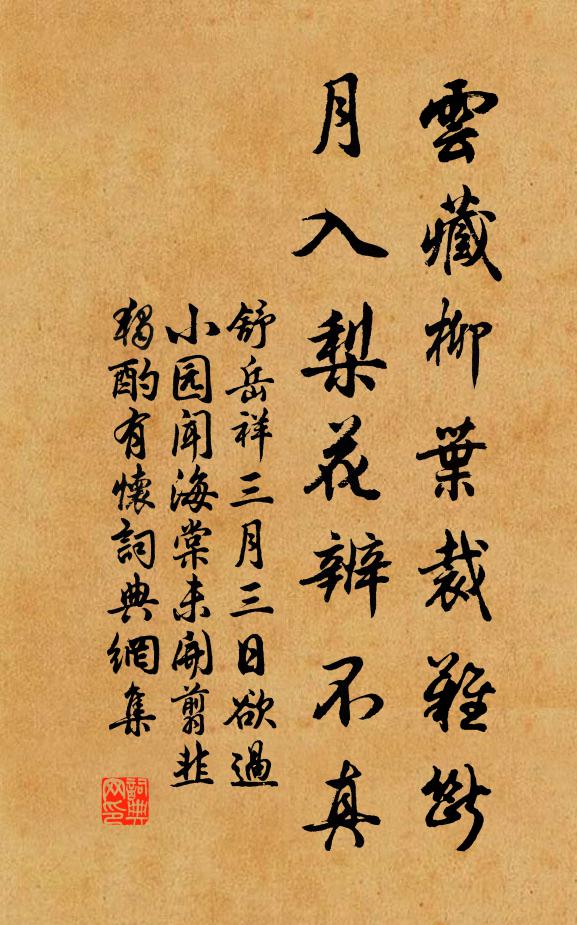 雲藏柳葉裁難斷
月入梨花辨不真
舒岳祥三月三日欲過
小园闻海棠未開翦韭
獨酌有懷詞典網集
詞典
网印